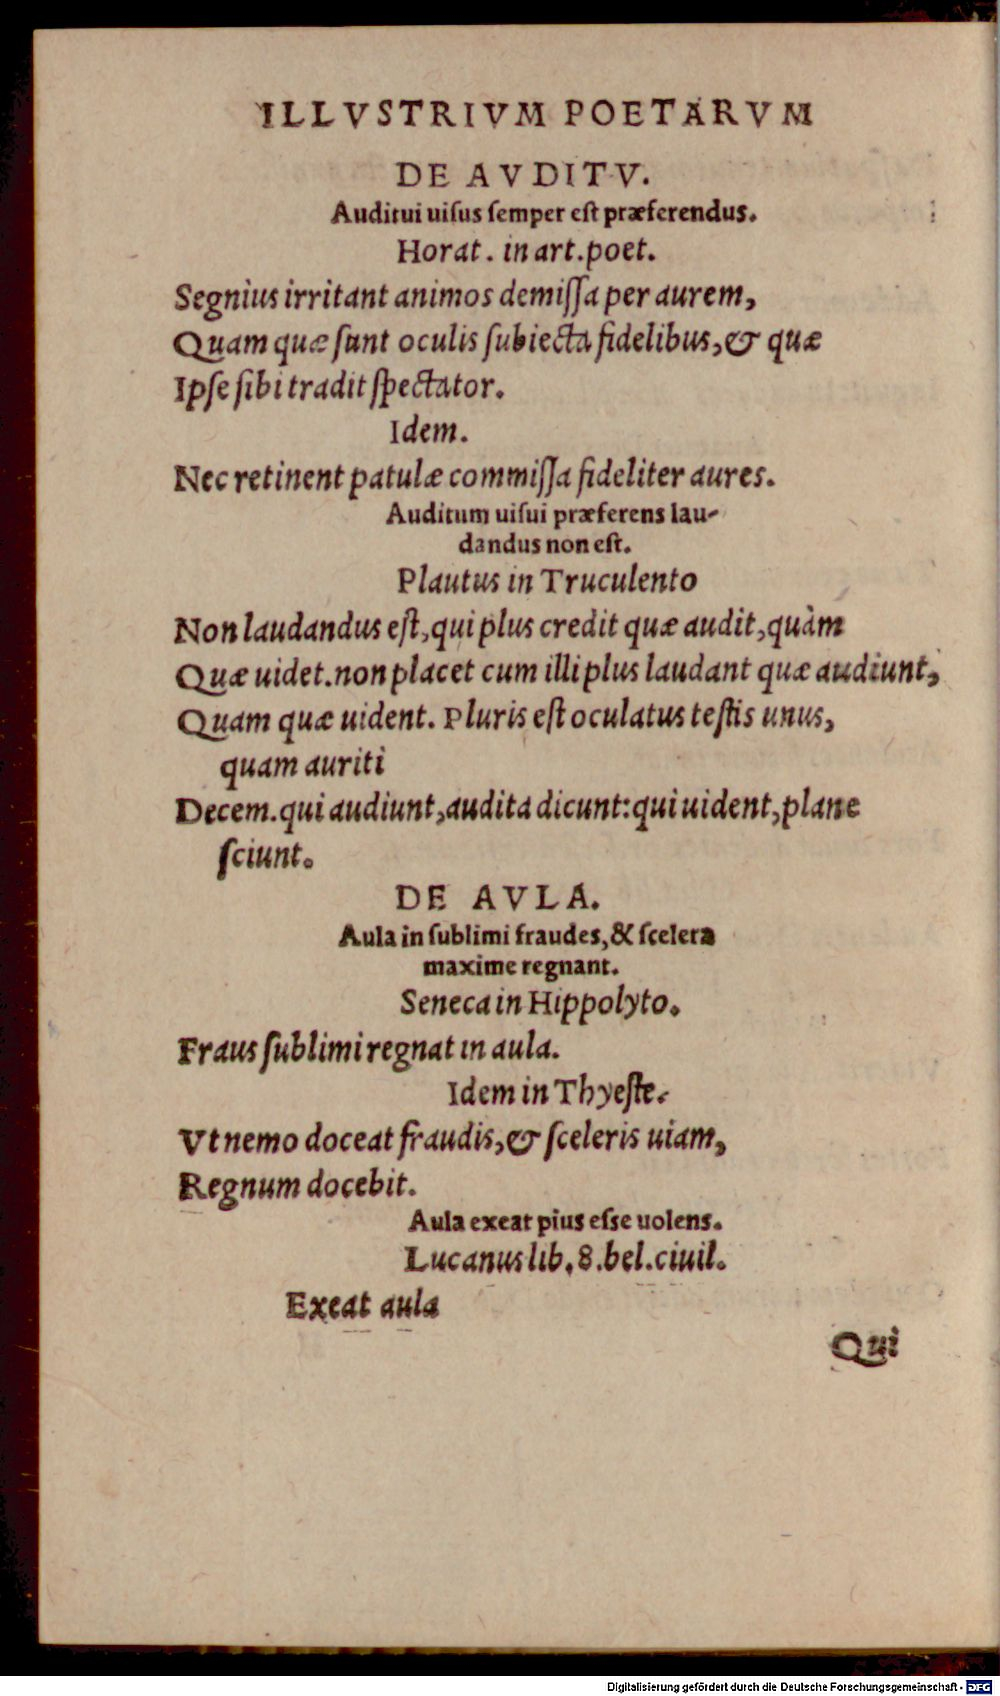 ILLVSTRIVM POETARVM
DE AVDITV.
Auditui uiſus ſemper eſt præferendus.
Horat. in art. poet.
Segnius irritant animos demiſſa per aurem,
Quam quæ ſunt oculis ſubiecta fidelibus, & quæ
Ipſe ſibi tradit ſpectator.
Idem.
Nec retinent patulæ commiſſa fideliter aures.
Auditum uiſui præferens lau-
dandus non eſt.
Plautus in Truculento
Non laudandus eſt, qui plus credit quæ audit, quàm
Quæ uidet. non placet cum illi plus laudant quæ audiunt,
Quam quæ uident. Pluris eſt oculatus teſtis unus,
quam auriti
Decem. qui audiunt, audita dicunt: qui uident, plane
ſciunt.
DE AVLA.
Aula in ſublimi fraudes, & ſcelera
maxime regnant.
Seneca in Hippolyto.
Fraus ſublimi regnat in aula.
Idem in Thyeſte.
Vt nemo doceat fraudis, & ſceleris uiam,
Regnum docebit.
Aula exeat pius eſſe uolens.
Lucanus lib. 8. bel. ciuil.
Exeat aula
Qui
Digitalisierung gefördert durch die Deutsche Forschungsgemeinschaft - DFG